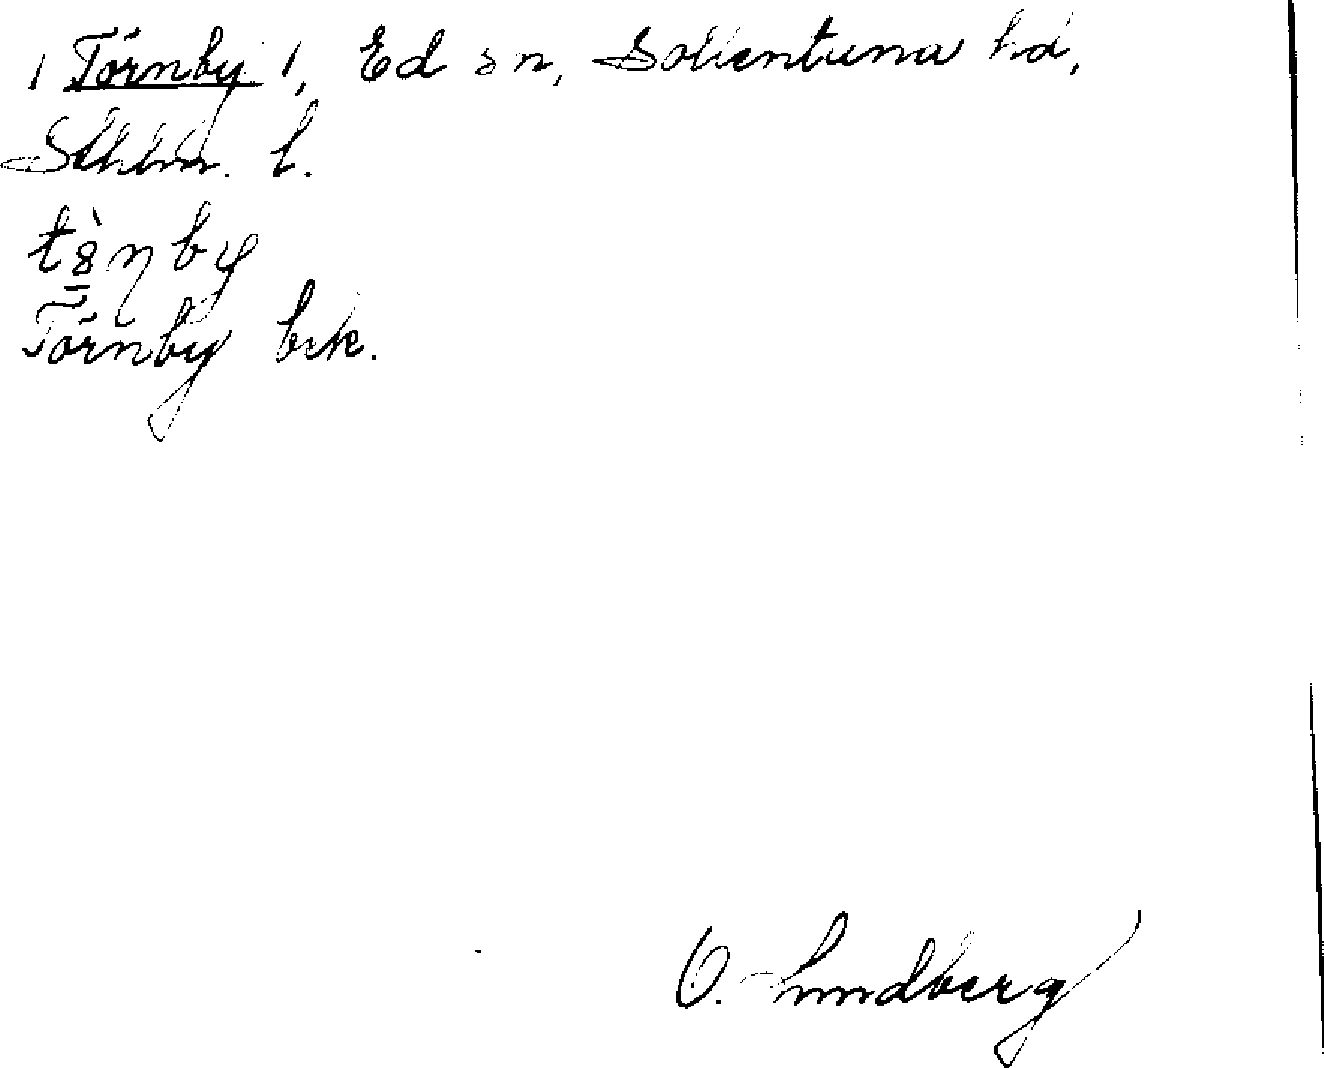 / Törnby /, Ed sn, Sollentuna hd,
Sthlm. l.
Törnby bek.
O. Lundberg